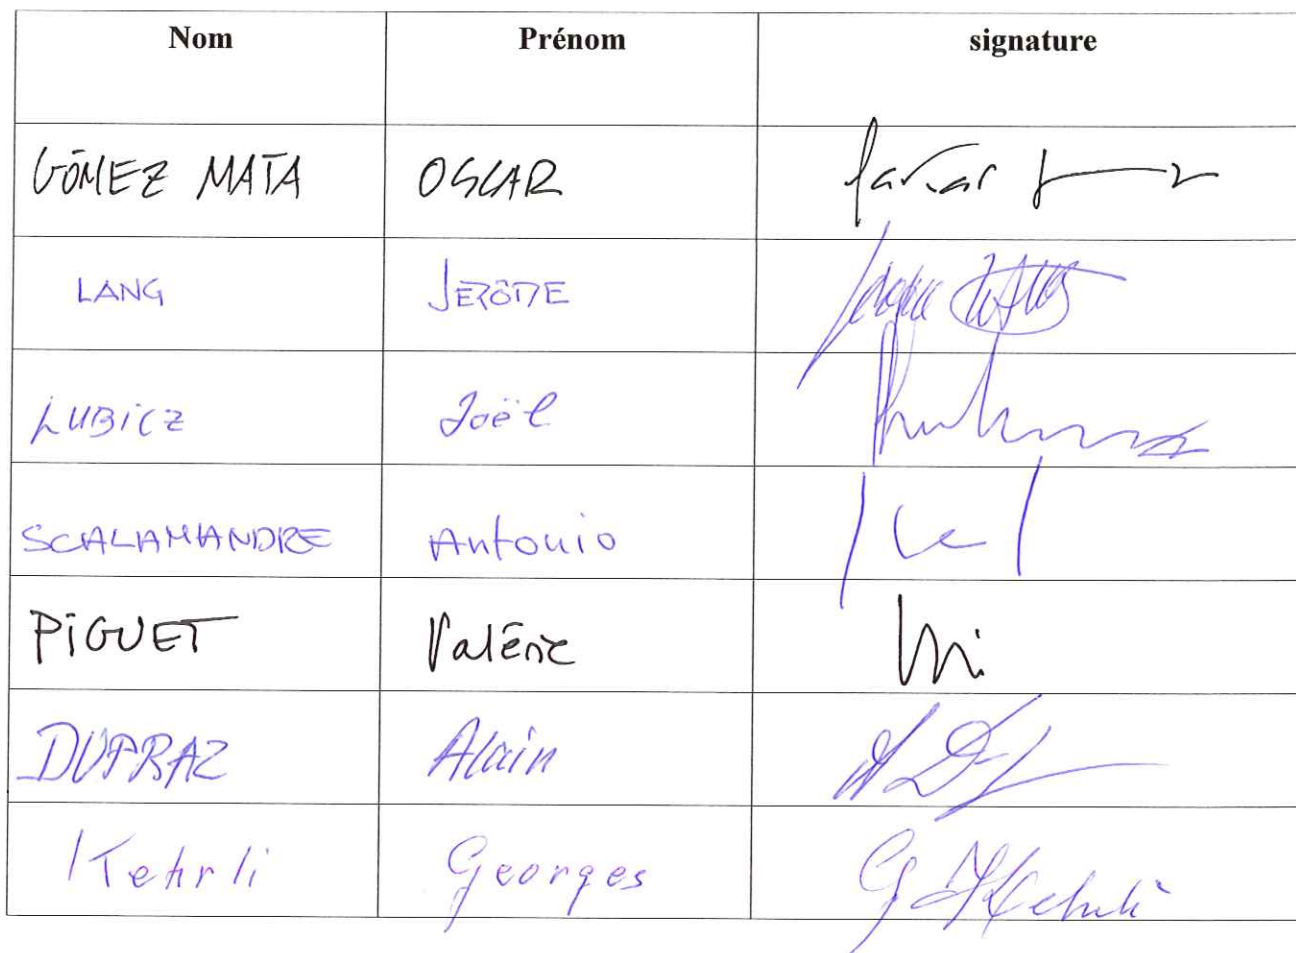 Nom Prénom signature
GÓMEZ MATA OSCAR
LANG JERÔME
LUBICZ Joël
SCALAMANDRE Antonio
PIGUET Valérie
DUPRAZ Alain
Kehrli Georges G. Kehrli